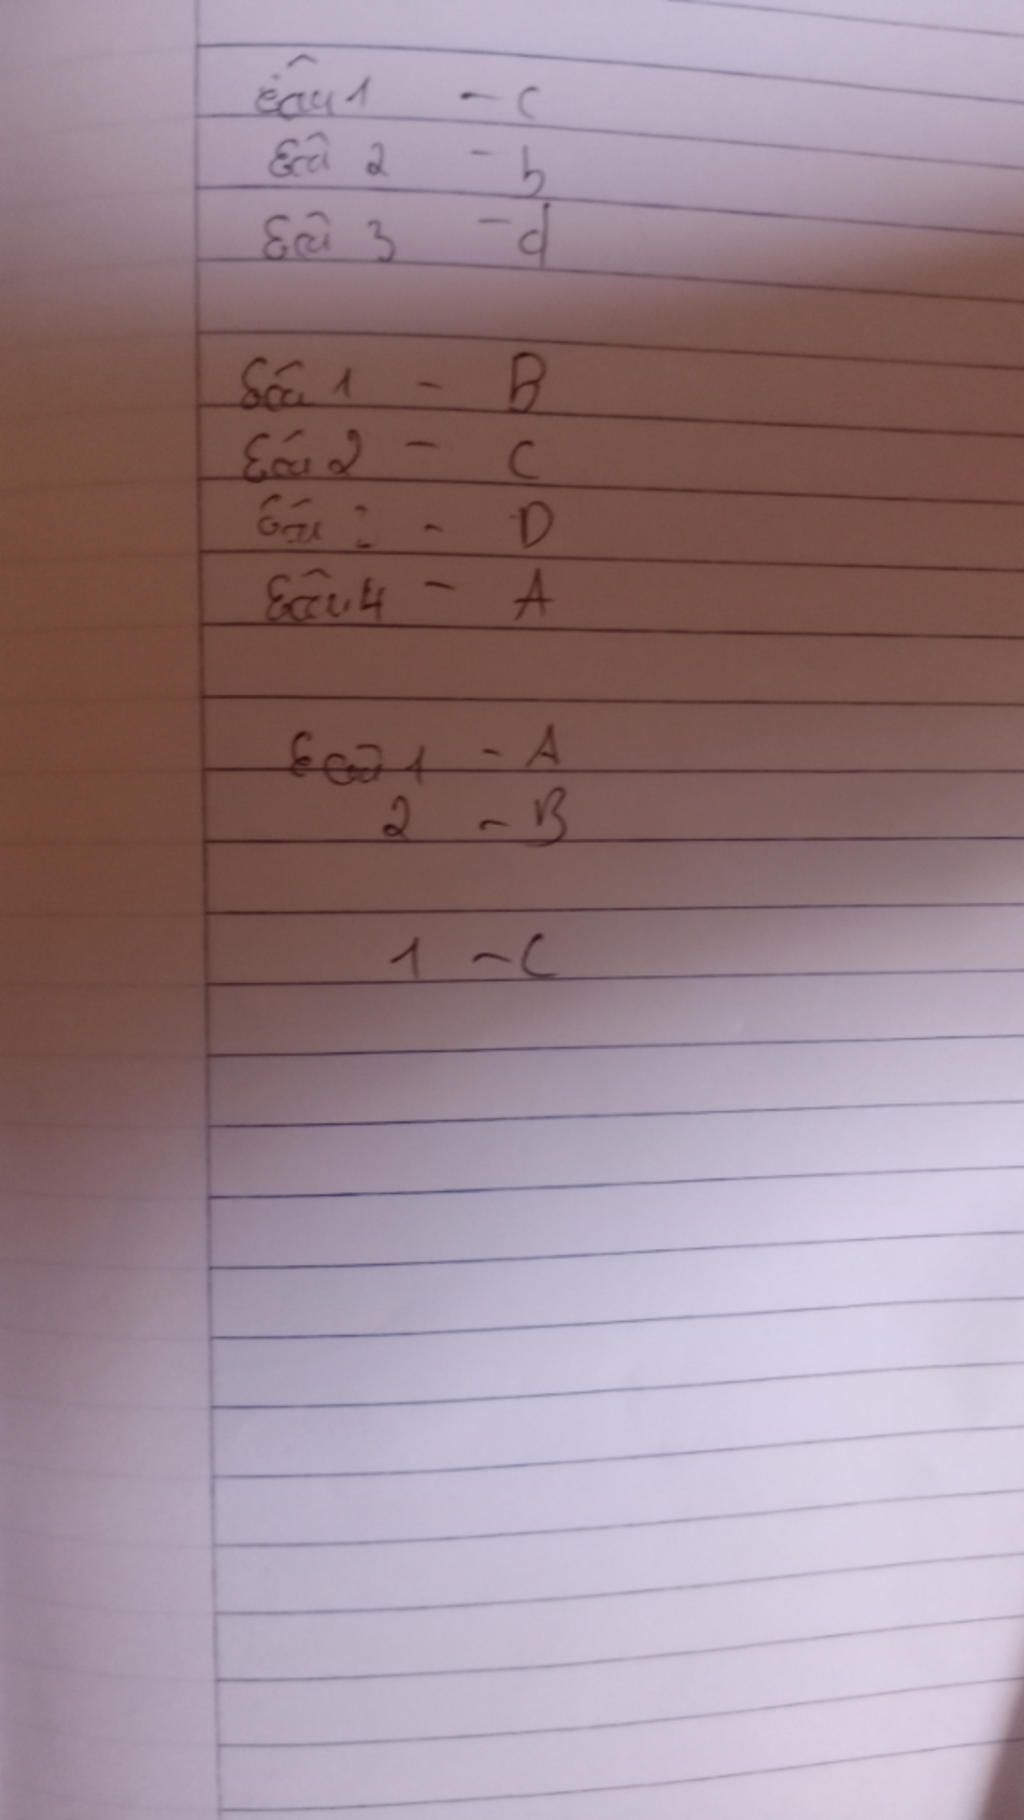 Câu 1 - C
Câu 2 - b
Câu 3 - d
Câu 1 - B
Câu 2 - C
Câu - D
Câu 4 - A
Câu 1 - A
2 - B
1 - C